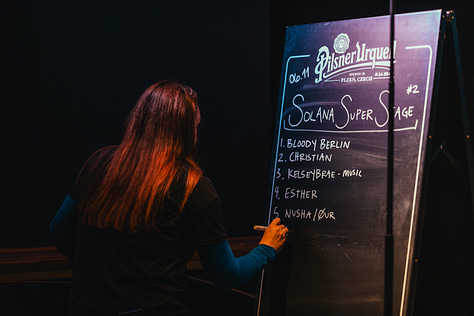 Pilsner Urquell
PLZEŇ, CZECH
06.11
#2
SOLANA SUPER STAGE
1. BLOODY BERLIN
2. CHRISTIAN
3. KELSEYBRAE - MUSIC
4. ESTHER
5 NUSHA/ØUR